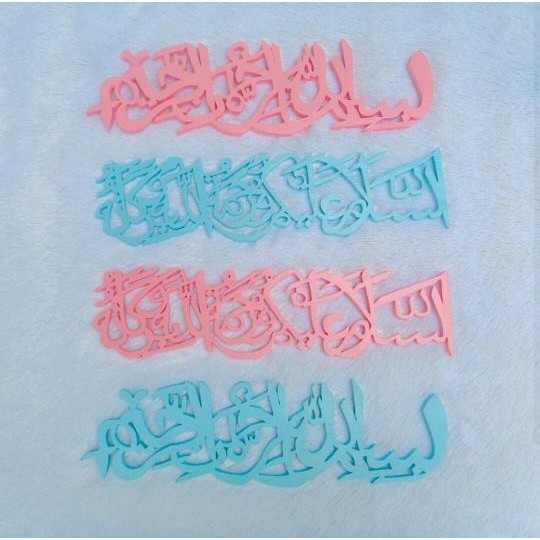 بسم الله الرحمن الرحيم
السلام عليكم ورحمة الله وبركاته
السلام عليكم ورحمة الله وبركاته
بسم الله الرحمن الرحيم